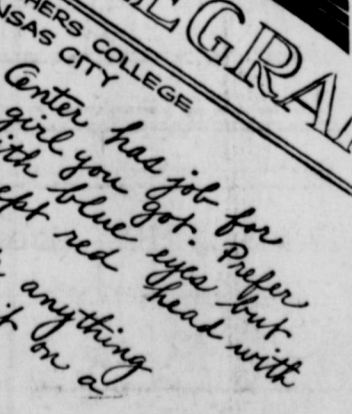 EGRA
HERS COLLEGE
NSAS CITY
Center has job for
girl you got. Prefer
ith blue eyes but
ept red head with
anything
on a